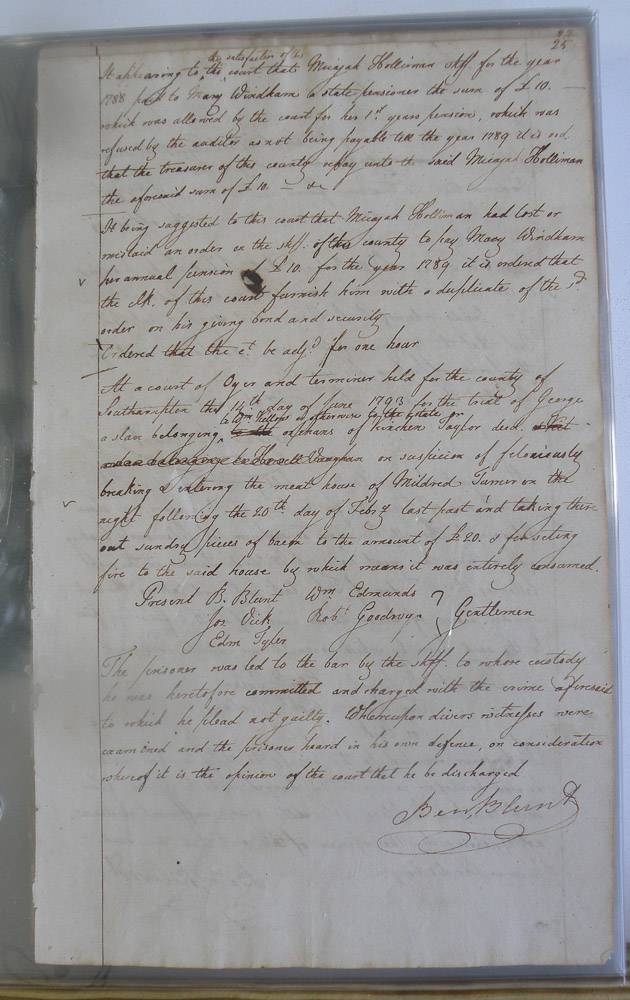 25
the satisfaction of the
It appearing to the court that Micajah Holliman shff. for the year
1788 paid to Mary Windham a state pensioner the sum of £10. —
which was allowed by the court for her 1st. years pension, which was
refused by the auditor as not being payable till the year 1789 it is ord.
that the treasurer of this county repay unto the said Micajah Holliman
the aforesaid sum of £10. — &c
It being suggested to this court that Micajah Holliman had lost or
mislaid an order on the shff. of this county to pay Mary Windham
her annual pension £10. for the year 1789 it is ordered that
the clk. of this court furnish him with a duplicate of the sd.
order on his giving bond and security
Ordered that the ct. be adjd. for one hour
At a court of Oyer and terminer held for the county of
Southampton the 14th day of June 1793 for the trial of George
to Wm Kellos or otherwise to the estate or
a slave belonging orphans of Kinchen Taylor decd.
belonging to Howell Vaughan on suspicion of feloniously
breaking & entering the meat house of Mildred Turner on the
night following the 20th day of Feby last past and taking there
out sundry pieces of bacon to the amount of £20. & for seting
fire to the said house by which means it was entirely consumed.
Present B. Blunt Wm Edmunds
Jos Vick Robt Goodwyn } Gentlemen
Edm Tyler
The prisoner was led to the bar by the shff. to whose custody
he was heretofore committed and charged with the crime aforesaid
to which he plead not guilty. Whereupon divers witnesses were
examined and the prisoner heard in his own defence, on consideration
whereof it is the opinion of the court that he be discharged
Ben. Blunt